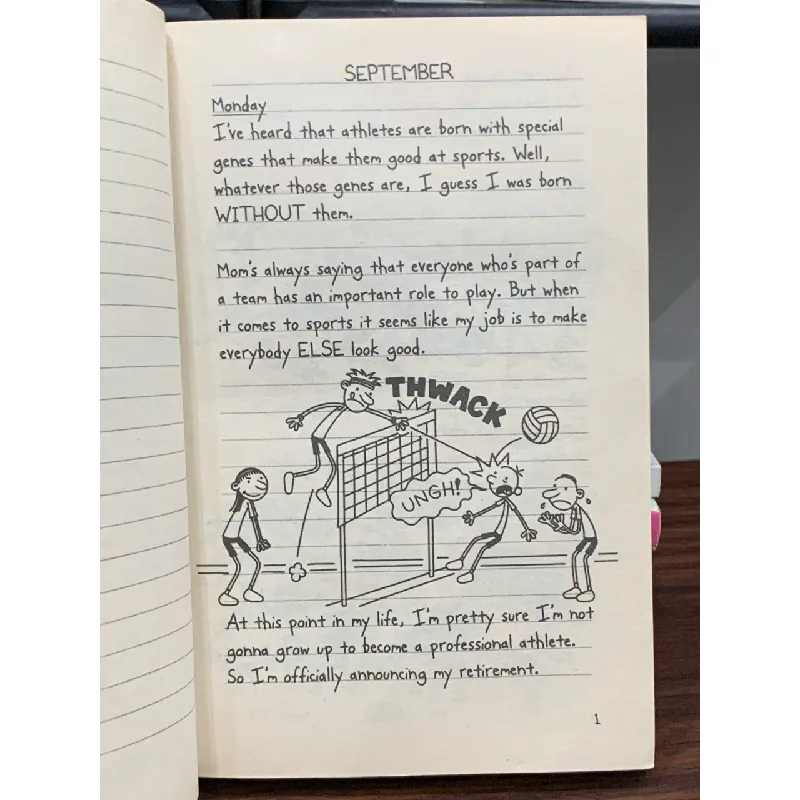 SEPTEMBER
Monday
I've heard that athletes are born with special
genes that make them good at sports. Well,
whatever those genes are, I guess I was born
WITHOUT them.
Mom's always saying that everyone who's part of
a team has an important role to play. But when
it comes to sports it seems like my job is to make
everybody ELSE look good.
THWACK
UNGH!
At this point in my life, I'm pretty sure I'm not
gonna grow up to become a professional athlete.
So I'm officially announcing my retirement.
1